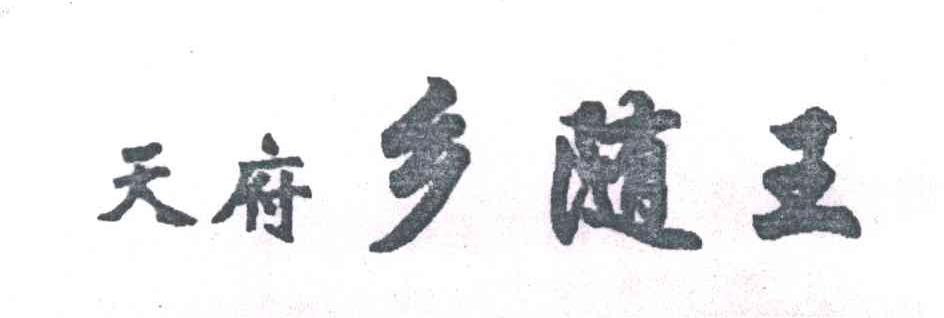 天府乡随王